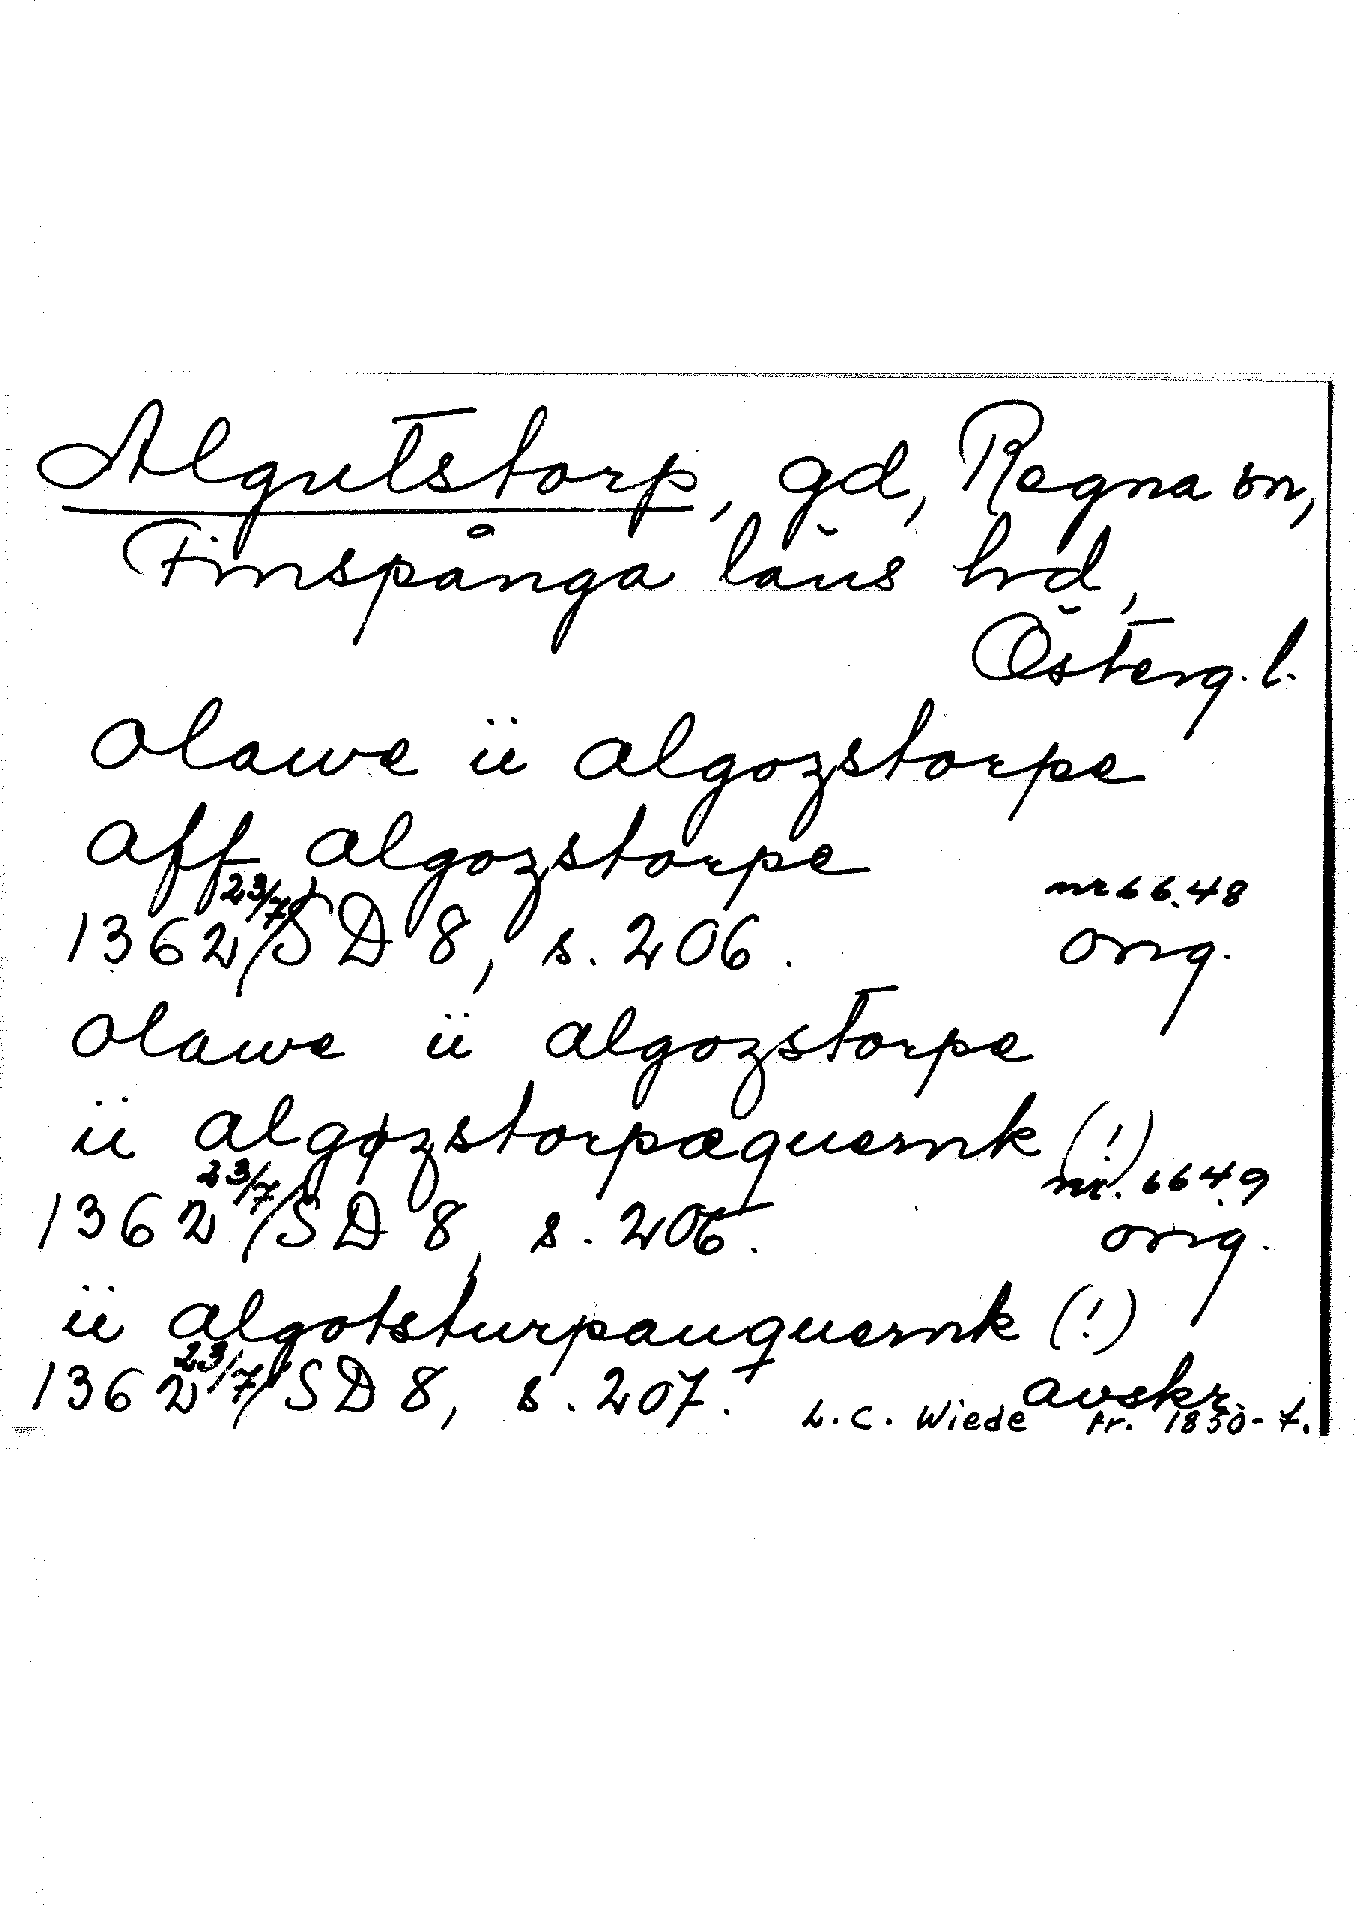 Algutstorp, gd, Regna sn,
Finspånga läns hrd,
Österg. l.
olawe ii algozstorpe
aff algozstorpe
1362 23/7 SD 8, s. 206. nr 6648 orig.
olawe ii algozstorpe
ii algøzstorpæquernk (!)
1362 23/7 SD 8, s. 206. nr. 6649 orig.
ii algotsturpauquernk (!)
1362 23/7 SD 8, s. 207. avskr.
L. C. Wiede fr. 1850-t.